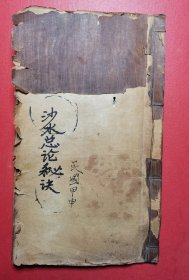 沙水总论秘诀
民國甲申